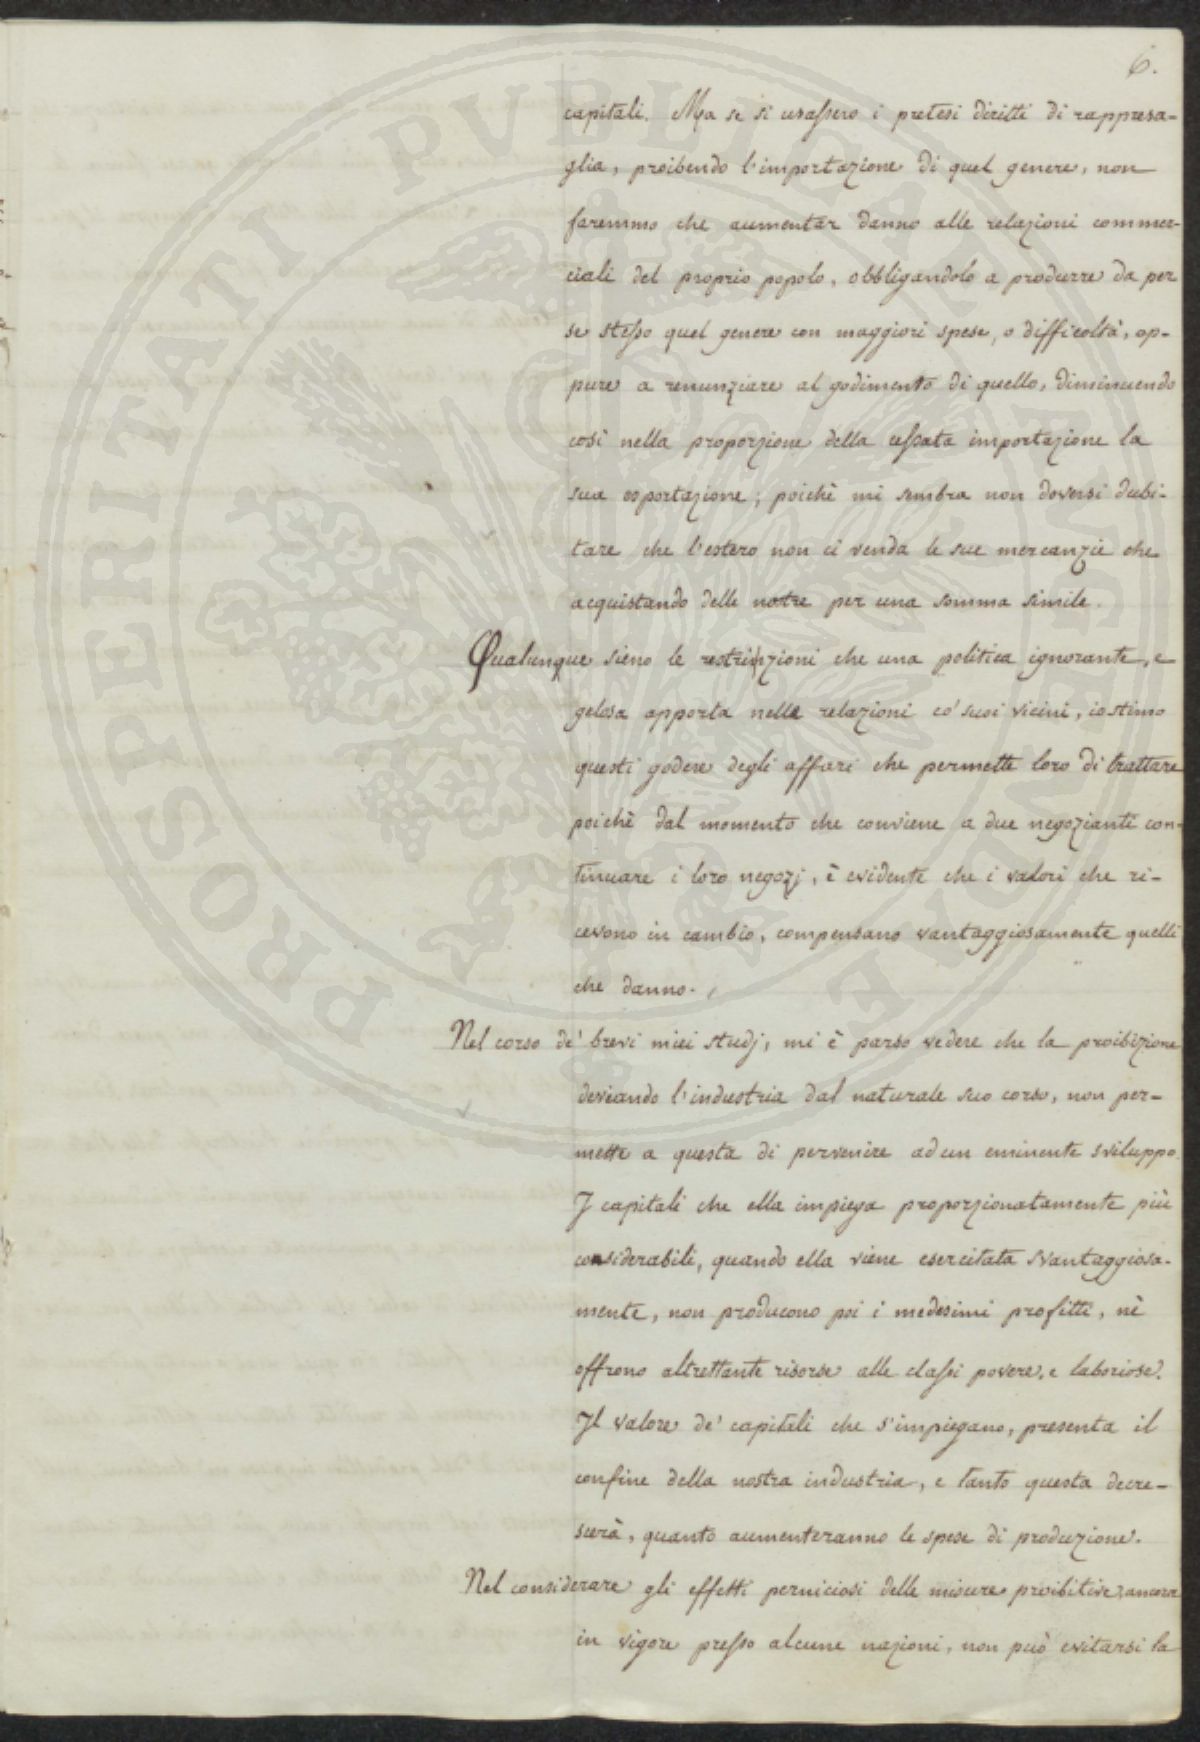 6.
capitali. Ma se si usassero i pretesi diritti di rappresa-
glia, proibendo l'importazione di quel genere, non
faremmo che aumentar danno alle relazioni commer-
ciali del proprio popolo, obbligandolo a produrre da per
se stesso quel genere con maggiori spese, o difficoltà, op-
pure a renunziare al godimento di quello, diminuendo
così nella proporzione della cessata importazione la
sua esportazione; poichè mi sembra non doversi dubi-
tare che l'estero non ci venda le sue mercanzie che
acquistando delle nostre per una somma simile.
Qualunque sieno le restrinzioni che una politica ignorante, e
gelosa apporta nelle relazioni co' suoi vicini, io stimo
questi godere degli affari che permette loro di trattare
poichè dal momento che conviene a due negozianti con-
tinuare i loro negozj, è evidente che i valori che ri-
cevono in cambio, compensano vantaggiosamente quelli
che danno.
Nel corso de' brevi miei studj, mi è parso vedere che la proibizione
deviando l'industria dal naturale suo corso, non per-
mette a questa di pervenire ad un eminente sviluppo.
I capitali che ella impiega proporzionatamente più
considerabili, quando ella viene esercitata svantaggiosa-
mente, non producono poi i medesimi profitti, nè
offrono altrettante risorse alle classi povere, e laboriose.
Il valore de' capitali che s'impiegano, presenta il
confine della nostra industria, e tanto questa decre-
scerà, quanto aumenteranno le spese di produzione.
Nel considerare gli effetti perniciosi delle misure proibitive, ancora
in vigore presso alcune nazioni, non può evitarsi la
PROSPERITATI PVBLICAE AVGENDAE